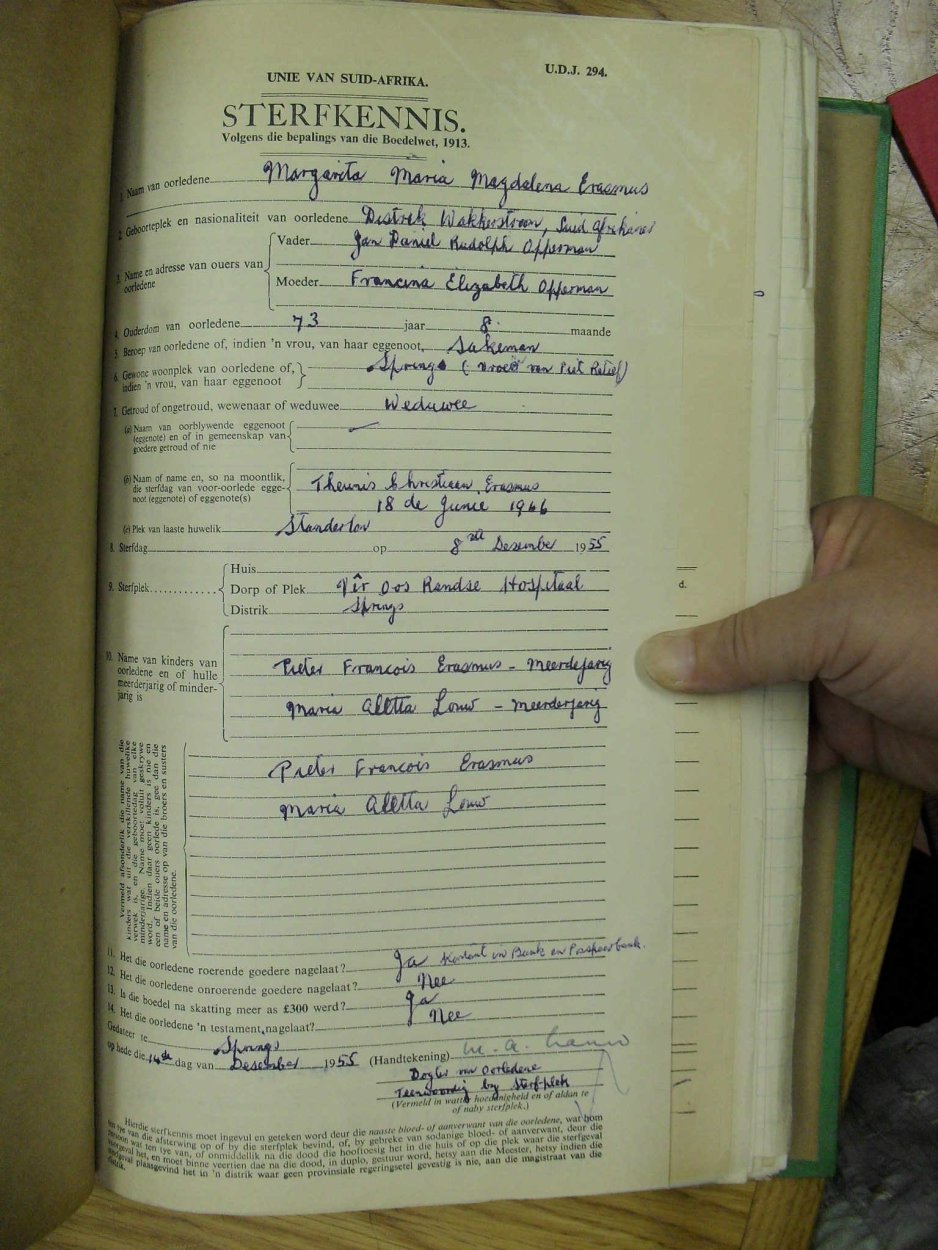 U.D.J. 294.
UNIE VAN SUID-AFRIKA.
STERFKENNIS.
Volgens die bepalings van die Boedelwet, 1913.
1. Naam van oorledene Margarita Maria Magdalena Erasmus
2. Geboorteplek en nasionaliteit van oorledene Distrek Wakkerstroom, Suid Afrikaner
3. Name en adresse van ouers van oorledene
Vader Jan Daniel Rudolph Opperman
Moeder Francina Elizabeth Opperman
4. Ouderdom van oorledene 73 jaar 8. maande
5. Beroep van oorledene of, indien 'n vrou, van haar eggenoot, Sakeman
6. Gewone woonplek van oorledene of, indien 'n vrou, van haar eggenoot Springs (vroeër van Piet Retief)
7. Getroud of ongetroud, wewenaar of weduwee Weduwee
(a) Naam van oorblywende eggenoot
(eggenote) en of in gemeenskap van
goedere getroud of nie
(b) Naam of name en, so na moontlik,
die sterfdag van voor-oorlede egge-
noot (eggenote) of eggenote(s)
Theunis Christiaan Erasmus
18 de Junie 1966
(c) Plek van laaste huwelik Standerton
8. Sterfdag op 8ste Desember 1955
9. Sterfplek
Huis
Dorp of Plek Vêr Oos Randse Hospitaal
Distrik Springs
10. Name van kinders van
oorledene en of hulle
meerderjarig of minder-
jarig is
Pieter Francois Erasmus – Meerderjarig
Maria Aletta Louw – Meerderjarig
Vermeld afsonderlik die name van die
kinders wat uit die verskillende huwelike
verwek is, en die geboortedag van elke
minderjarige. Name moet voluit geskrywe
word. Indien daar geen kinders is nie en
een of beide ouers oorlede is, gee dan die
name en adresse op van die broers en susters
van die oorledene.
Pieter Francois Erasmus
Maria Aletta Louw
11. Het die oorledene roerende goedere nagelaat? Ja Kontant in Bank en Poskoorbank.
12. Het die oorledene onroerende goedere nagelaat? Nee
13. Is die boedel na skatting meer as £300 werd? Ja
14. Het die oorledene 'n testament nagelaat? Nee
Gedateer te Springs
op hede die 14de dag van Desember 1955 (Handtekening)
Dogter van Oorledene
Teenwoordig by Sterfplek
(Vermeld in watter hoedanigheid en of aldan te
of naby sterfplek.)
Hierdie sterfkennis moet ingevul en geteken word deur die naaste bloed- of aanverwant van die oorledene, wat
ten tye van die afsterwing op of by die sterfplek bevind, of, by gebreke van sodanige bloed- of aanverwant, deur die
persoon wat ten tye van, of onmiddellik na die dood die hooftoesig het in die huis of op die plek waar die sterfgeval
voorgeval het, en moet binne veertien dae na die dood, in duplo, gestuur word, hetsy aan die Meester, hetsy indien die
sterfgeval plaasgevind het in 'n distrik waar geen provinsiale regeringsetel gevestig is nie, aan die magistraat van die
distrik.
d.